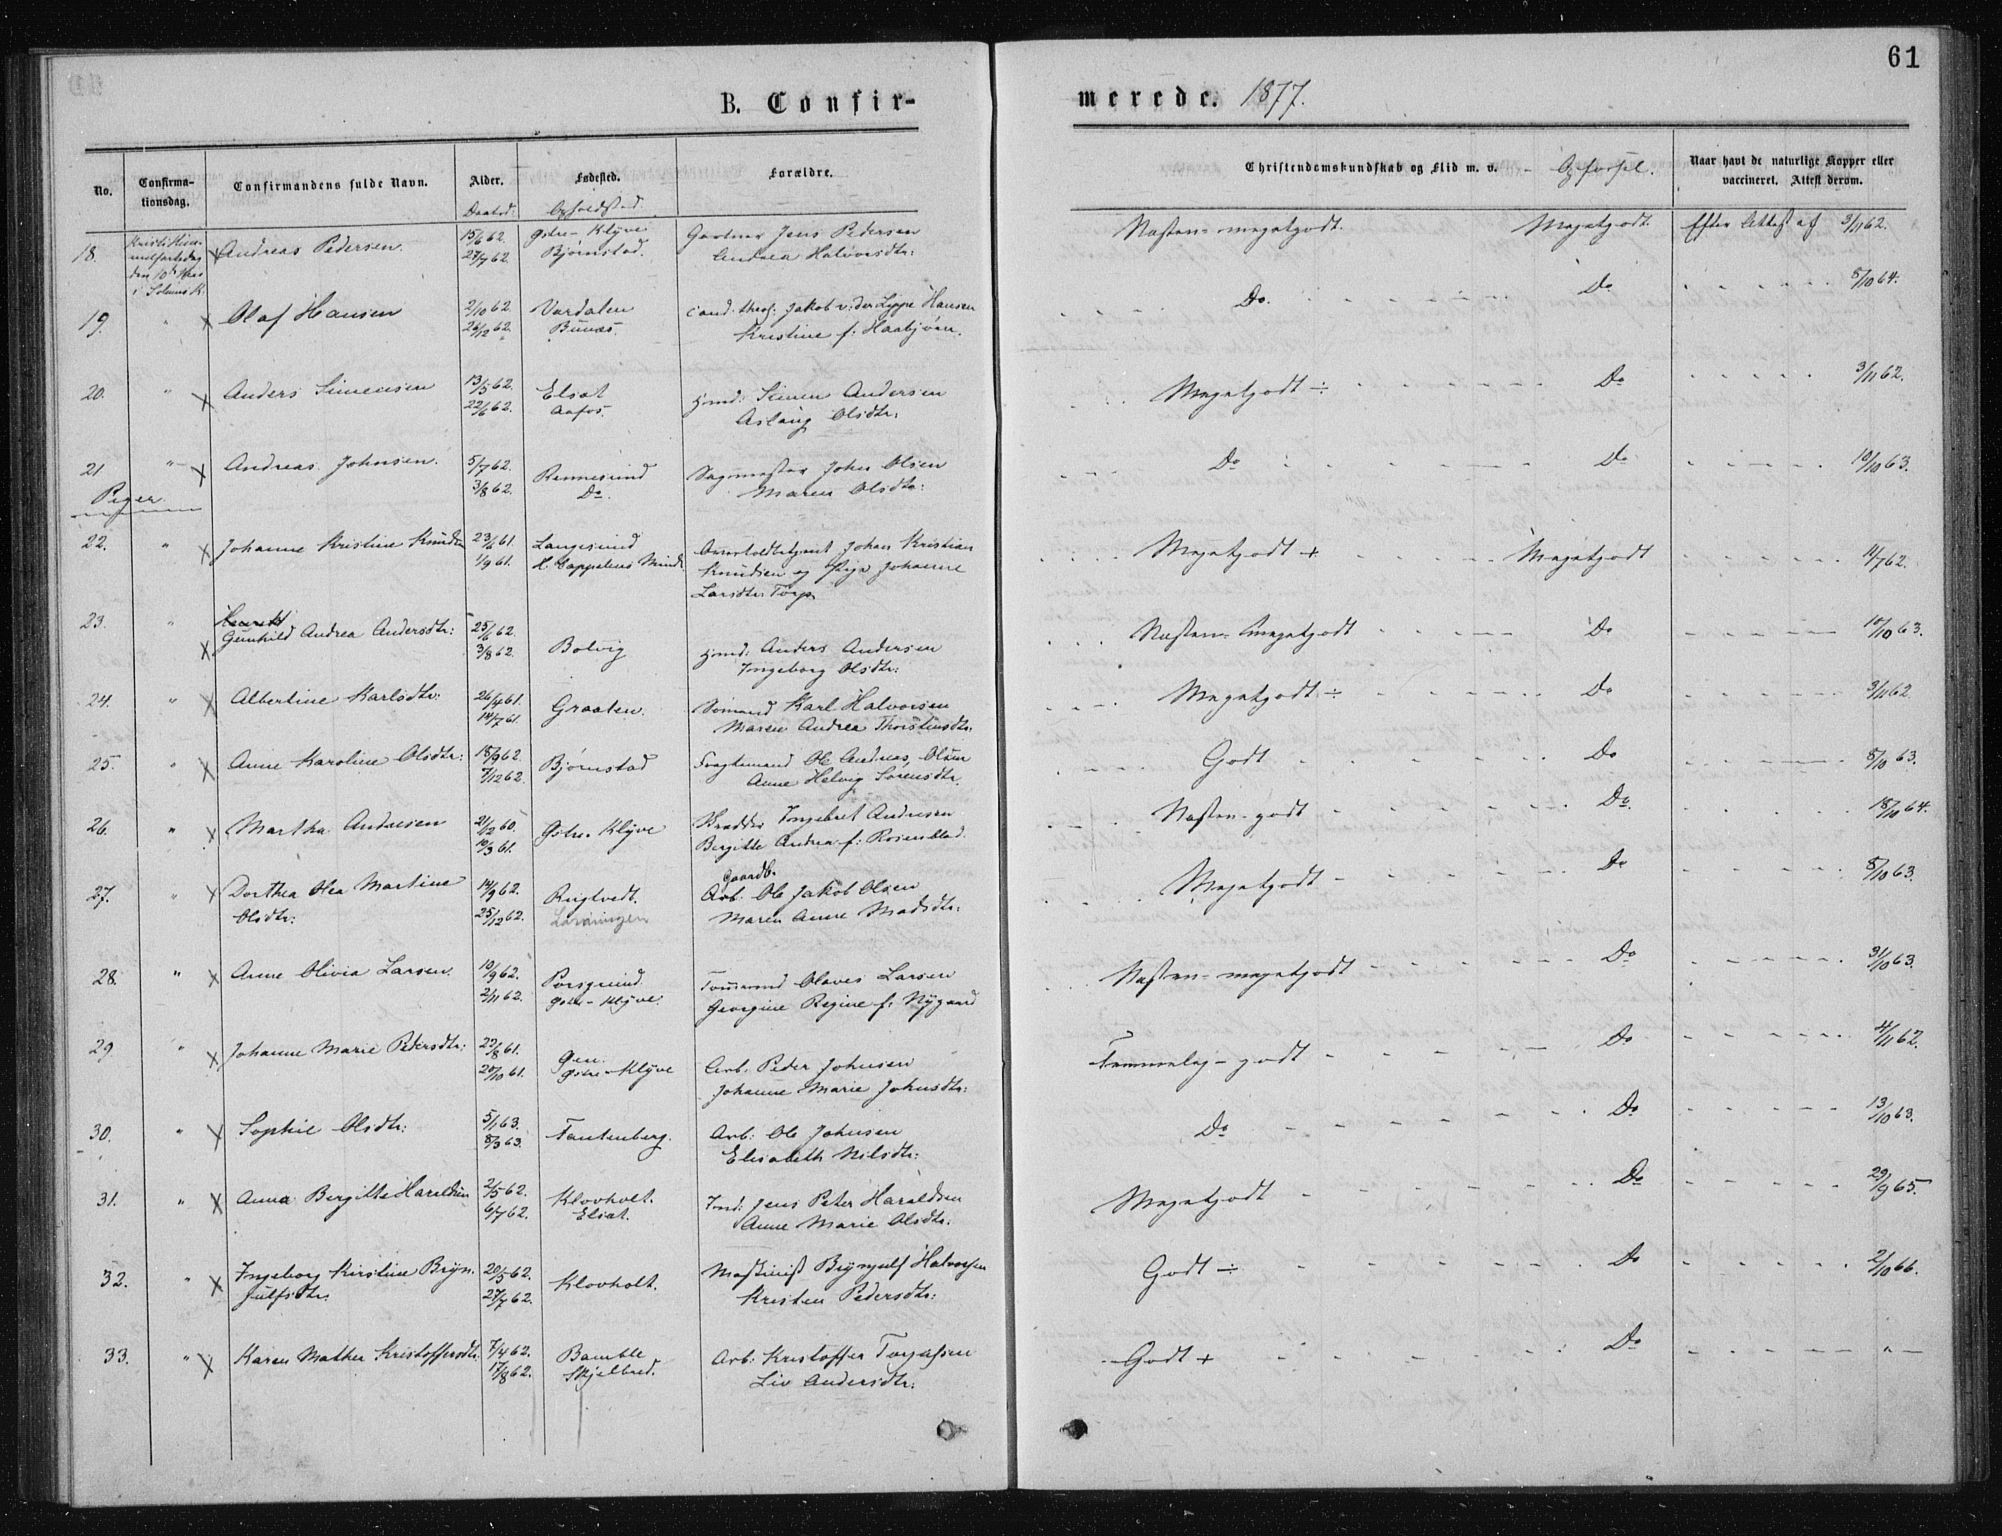 61
B. Confir-
merede. 1877.
No.
Confirma-
tionsdag.
Confirmandens fulde Navn.
Alder.
Daabsd:
Fødested.
Opholdsted.
Forældre.
Christendomskundskab og Flid m. v. - Opførsel.
Naar havt de naturlige Kopper eller
vaccineret. Attest derom.
18. Andreas Pedersen 15/6 62. Østre-Klyve Gartner Jens Pedersen Næsten-megetgodt. Megetgodt. Efter Attest af 3/11 62.
den 10de Mai
i Solums K.
27/7 62. Bjørnstad. Andrea Halvorsdtr:
19. " X Olaf Hansen 2/10 62. Vardalen Cand. theol. Jakob v: der Lippe Hansen Do. Do 8/10 64.
26/12 62. Bunæs. Kristine f.
20. " X Anders Simensen 13/5 62. Elsat Jmd: Simen Andersen Megetgodt ÷ Do 3/11 62.
22/6 62. Aafos. Aslaug Olsdtr:
21 " X Andreas Johnsen. 5/7 62. Rennesund Sagmester John Olsen Do Do 10/10 63.
3/8 62. Do. Maren Olsdtr:
Piger
22. " X Johanne Kristine Knudsen 23/6 61. Langesund Johan Kristian Megetgodt + Megetgodt 11/7 62.
1/9 61. H. Cappelens Minde Knudsen og Pige Johanne
Larsdtr. Torp
23. " X Gunhild Andrea Andersdtr: 25/6 62. Bolvig Jmd: Anders Andersen Næsten-megetgodt Do 10/10 63.
3/8 62. Ingeborg Olsdtr:
24. " X Albertine Karlsdtr: 26/4 61. Graaten. Sømand Karl Halvorsen Megetgodt ÷ Do 3/11 62
14/7 61. Maren Andrea Thorstensdtr:
25. " X Anne Karoline Olsdtr: 18/9 62. Bjørnstad Fragtemand Ole Andreas Olsen Godt Do 8/10 63.
7/12 62. Anne Helvig Sørensdtr.
26. " X Martha Andresen 21/12 60. Østre Klyve Skrædder Ingebret Andresen Næsten-godt Do. 18/10 64.
10/3 61. Bergitte Andrea f: Rosenblad
27. " X Dorthea Olea Martine 14/9 62. Rugtvedt. Gaardb. Megetgodt Do 8/10 63.
Arb. Ole Jakob Olsen
Olsdtr: 25/12 62. Maren Anne Madsdtr:
28. " X Anne Olivia Larsen. 10/9 62. Porsgrund Tømmermd Olaves Larsen Næsten-megetgodt Do 31/10 63.
2/11 62. Østre-Klyve. Georgine Regine f: Nygaard
29 " X Johanne Marie Pedersdtr: 22/8 61. Arb: Peder Johnsen Temmelig-godt Do 4/11 62.
20/10 61. Østre-Klyve Johanne Marie Johnsdtr:
30. " X Sophie Olsdtr: 5/1 63. Fantenberg. Arb: Ole Johnsen Do Do 13/10 63.
8/3 63. Elisabeth Nilsdtr:
31. " X Anna Bergitte Haraldsen 2/5 62. Klovholt. Jmd: Jens Peter Haraldsen Megetgodt Do 29/9 65.
6/7 62. Elsat. Anne Marie Olsdtr.
32. " X Ingeborg Kirstine Bryn- 20/5 62. Klovholt. Maskinist Brynjulf Halvorsen Godt ÷ Do 2/10 66.
julfsdtr. 27/7 62. Kristen Pedersdtr:
33. " X Karen Mathea Kristoffersdtr. 7/4 62. Bamble Arb: Kristoffer Torjussen Godt + Do "
17/8 62. Skjelbred. Liv Andersdtr: